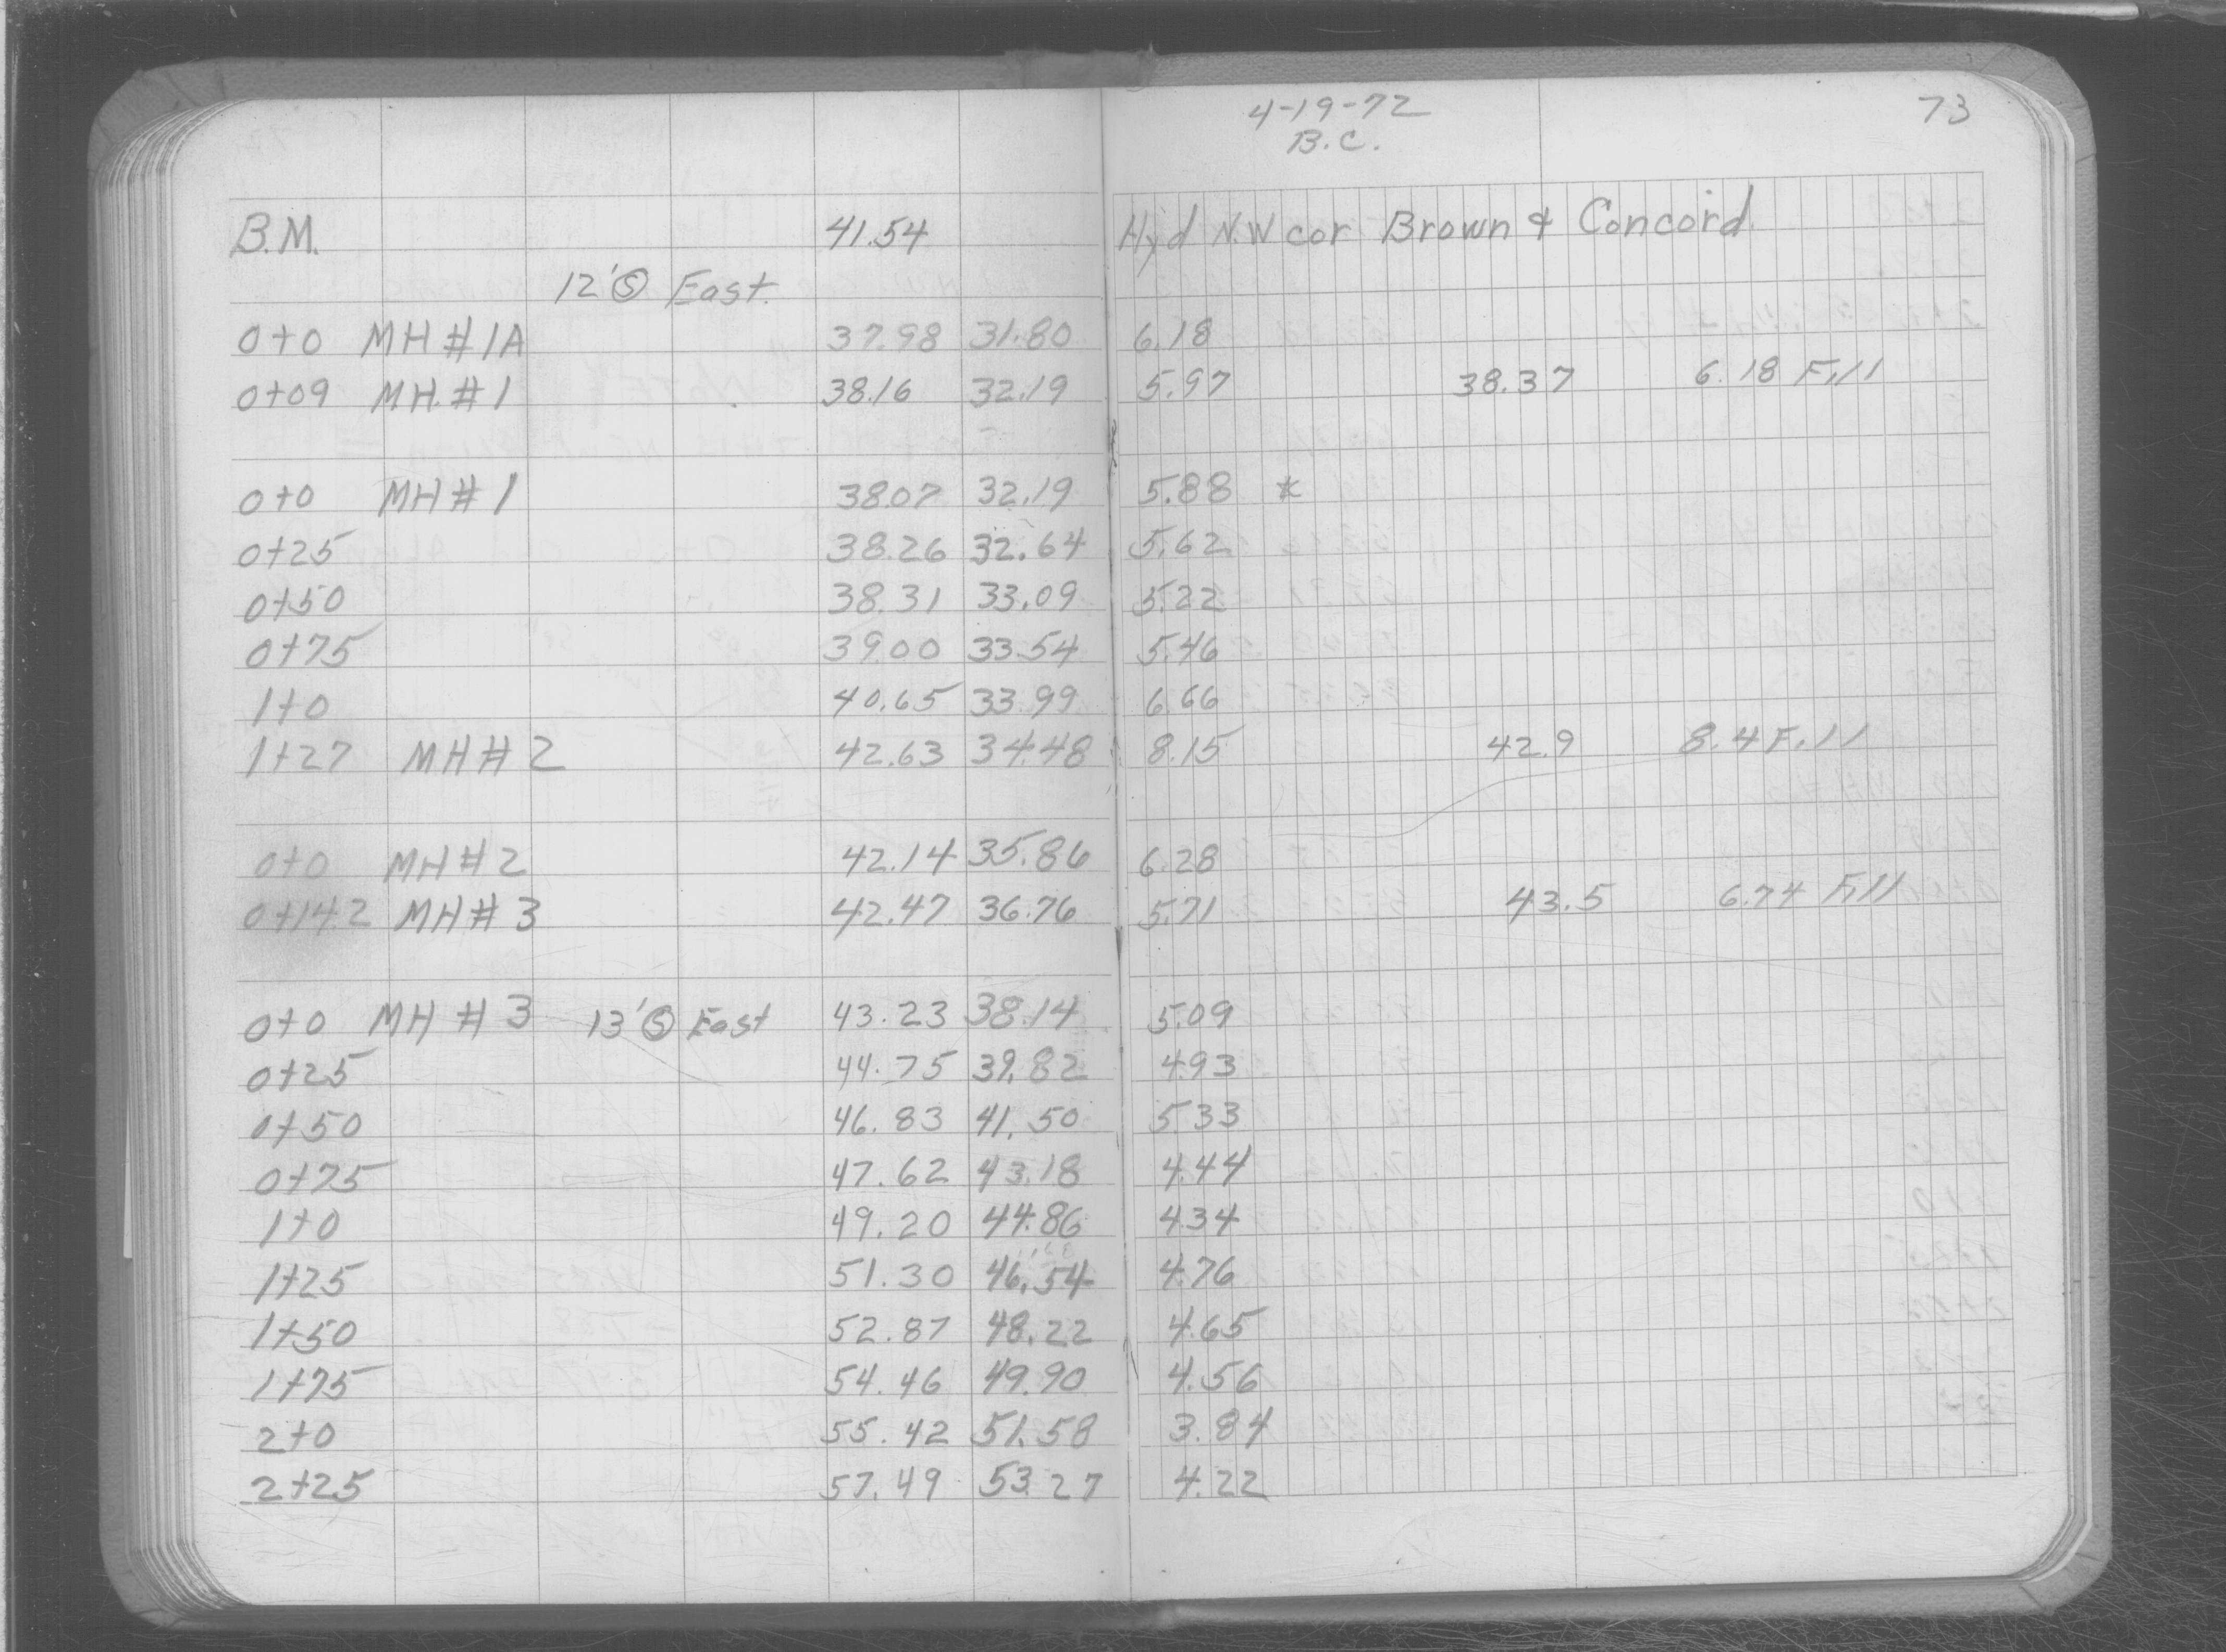 4-19-72 73
B.C.
B.M. 41.54 Hyd N.W cor Brown & Concord
12' Ⓢ East.
0+0 MH #1A 37.98 31.80 6.18
0+09 MH. #1 38.16 32.19 5.97 38.37 6.18 Fill
0+0 MH #1 38.07 32.19 5.88 *
0+25 38.26 32.64 5.62
0+50 38.31 33.09 5.22
0+75 39.00 33.54 5.46
1+0 40.65 33.99 6.66
1+27 MH #2 42.63 34.48 8.15 42.9 8.4 Fill
0+0 MH #2 42.14 35.86 6.28
0+14.2 MH #3 42.47 36.76 5.71 43.5 6.74 Fill
0+0 MH #3 13' Ⓢ East 43.23 38.14 5.09
0+25 44.75 39.82 4.93
0+50 46.83 41.50 5.33
0+75 47.62 43.18 4.44
1+0 49.20 44.86 4.34
1+25 51.30 46.54 4.76
1+50 52.87 48.22 4.65
1+75 54.46 49.90 4.56
2+0 55.42 51.58 3.84
2+25 57.49 53.27 4.22